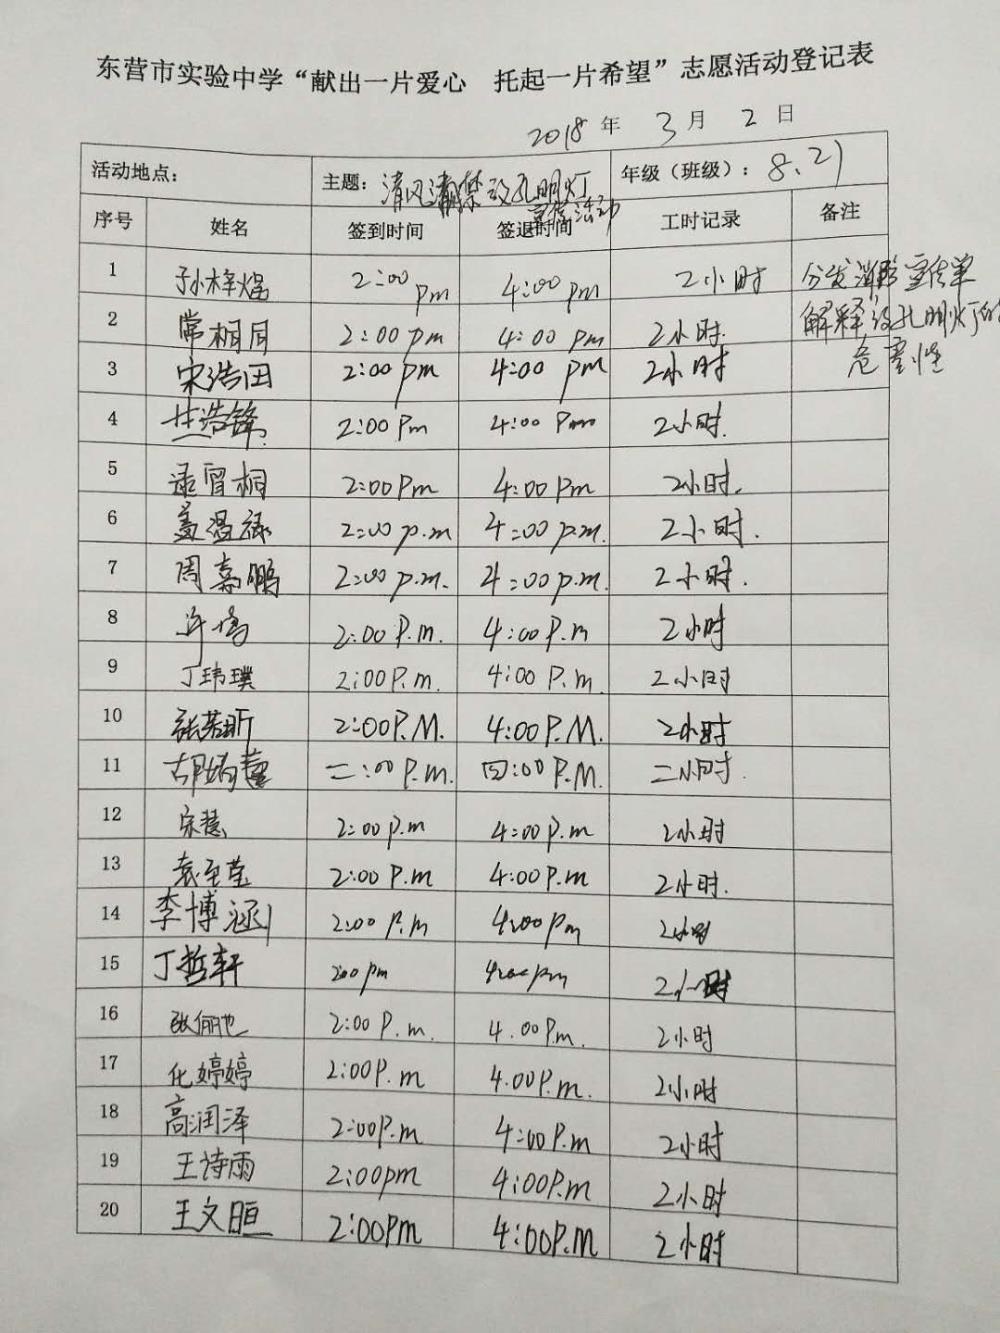 东营市实验中学“献出一片爱心 托起一片希望”志愿活动登记表
2018年 3月 2日
活动地点： 主题：清风 禁放孔明灯 宣传活动 年级（班级）：8.21
序号 姓名 签到时间 签退时间 工时记录 备注
1 孙梓焜 2:00 pm 4:00 pm 2小时 分发 宣传单
2 常桐月 2:00 pm 4:00 pm 2小时. 解释放孔明灯的
3 宋浩田 2:00 pm 4:00 pm 2小时 危害性
4 浩锋 2:00 Pm 4:00 Pm 2小时.
5 桐 2:00 Pm 4:00 Pm 2小时.
6 盖温禄 2:00 p.m 4:00 p.m. 2小时.
7 周嘉鹏 2:00 p.m. 4:00 p.m. 2小时.
8 许 2:00 P.m. 4:00 P.m 2小时
9 丁玮璞 2:00 P.m. 4:00 P.m. 2小时
10 张若昕 2:00 P.M. 4:00 P.M. 2小时
11 胡 二:00 P.m. 四:00 P.M. 二小时.
12 宋慧 2:00 p.m 4:00 p.m 2小时
13 袁至莹 2:00 P.m 4:00 P.m 2小时.
14 李博涵 2:00 P.m 4:00 pm 2小时
15 丁哲轩 2:00 pm 4:00 pm 2小时
16 张俪也 2:00 P.m. 4.00 P.m. 2小时
17 化婷婷 2:00 P.m 4.00P.m. 2小时
18 高润泽 2:00P.m 4:00P.m 2小时
19 王诗雨 2:00pm 4:00P.m 2小时
20 王文晅 2:00Pm 4:00P.M 2小时